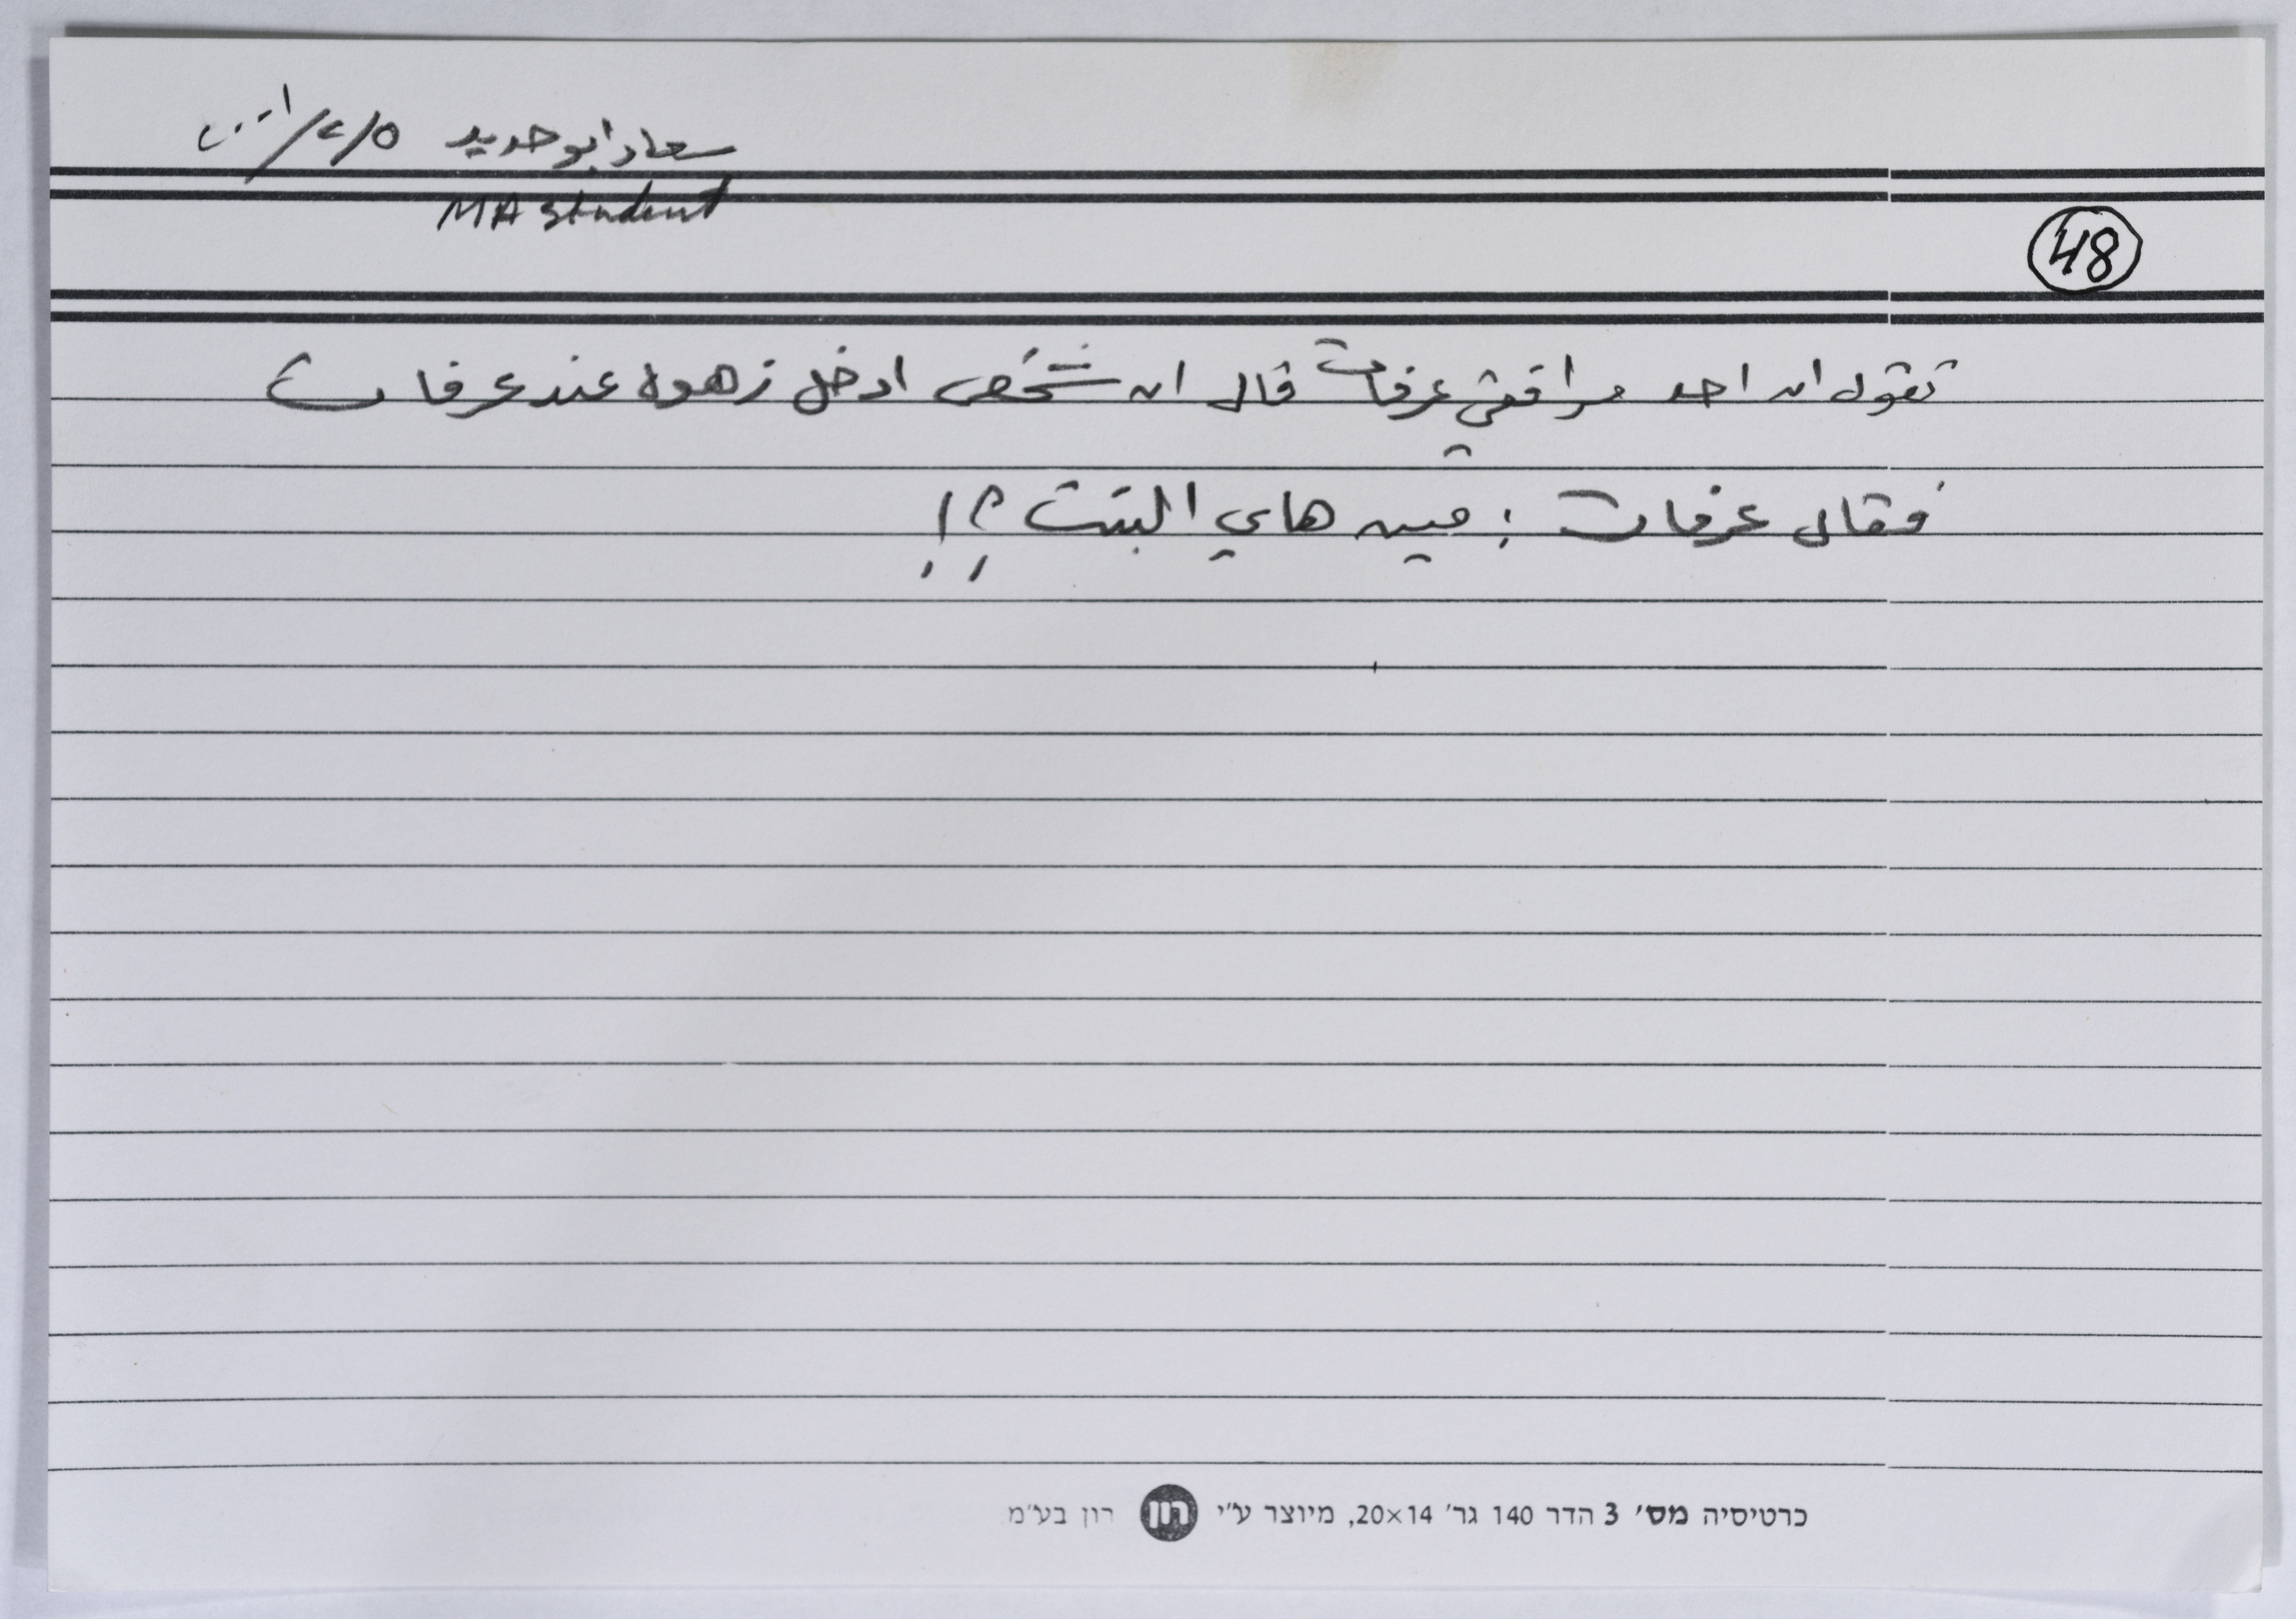 سعاد ابو حديد ٥/٢/٢٠٠١
MA student
48
تقول ان احد مرافقي عرفات قال ان شخص ادخل زهوه عند عرفات
فقال عرفات : مين هاي البنت ؟!
כרטיסיה מס׳ 3 הדר 140 גר׳ 20×14, מיוצר ע״י רון רון בע״מ